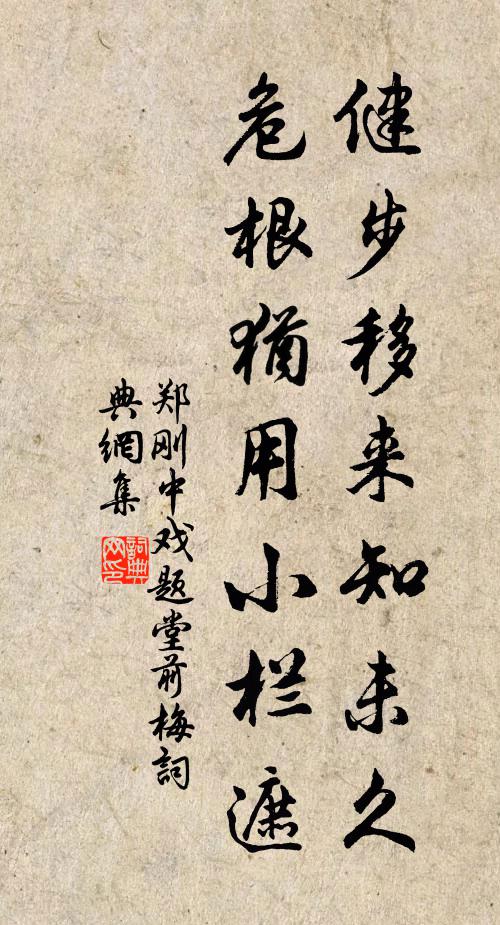 健步移来知未久
危根犹用小栏遮
郑刚中戏题堂前梅詞
典網集
詞典
网印